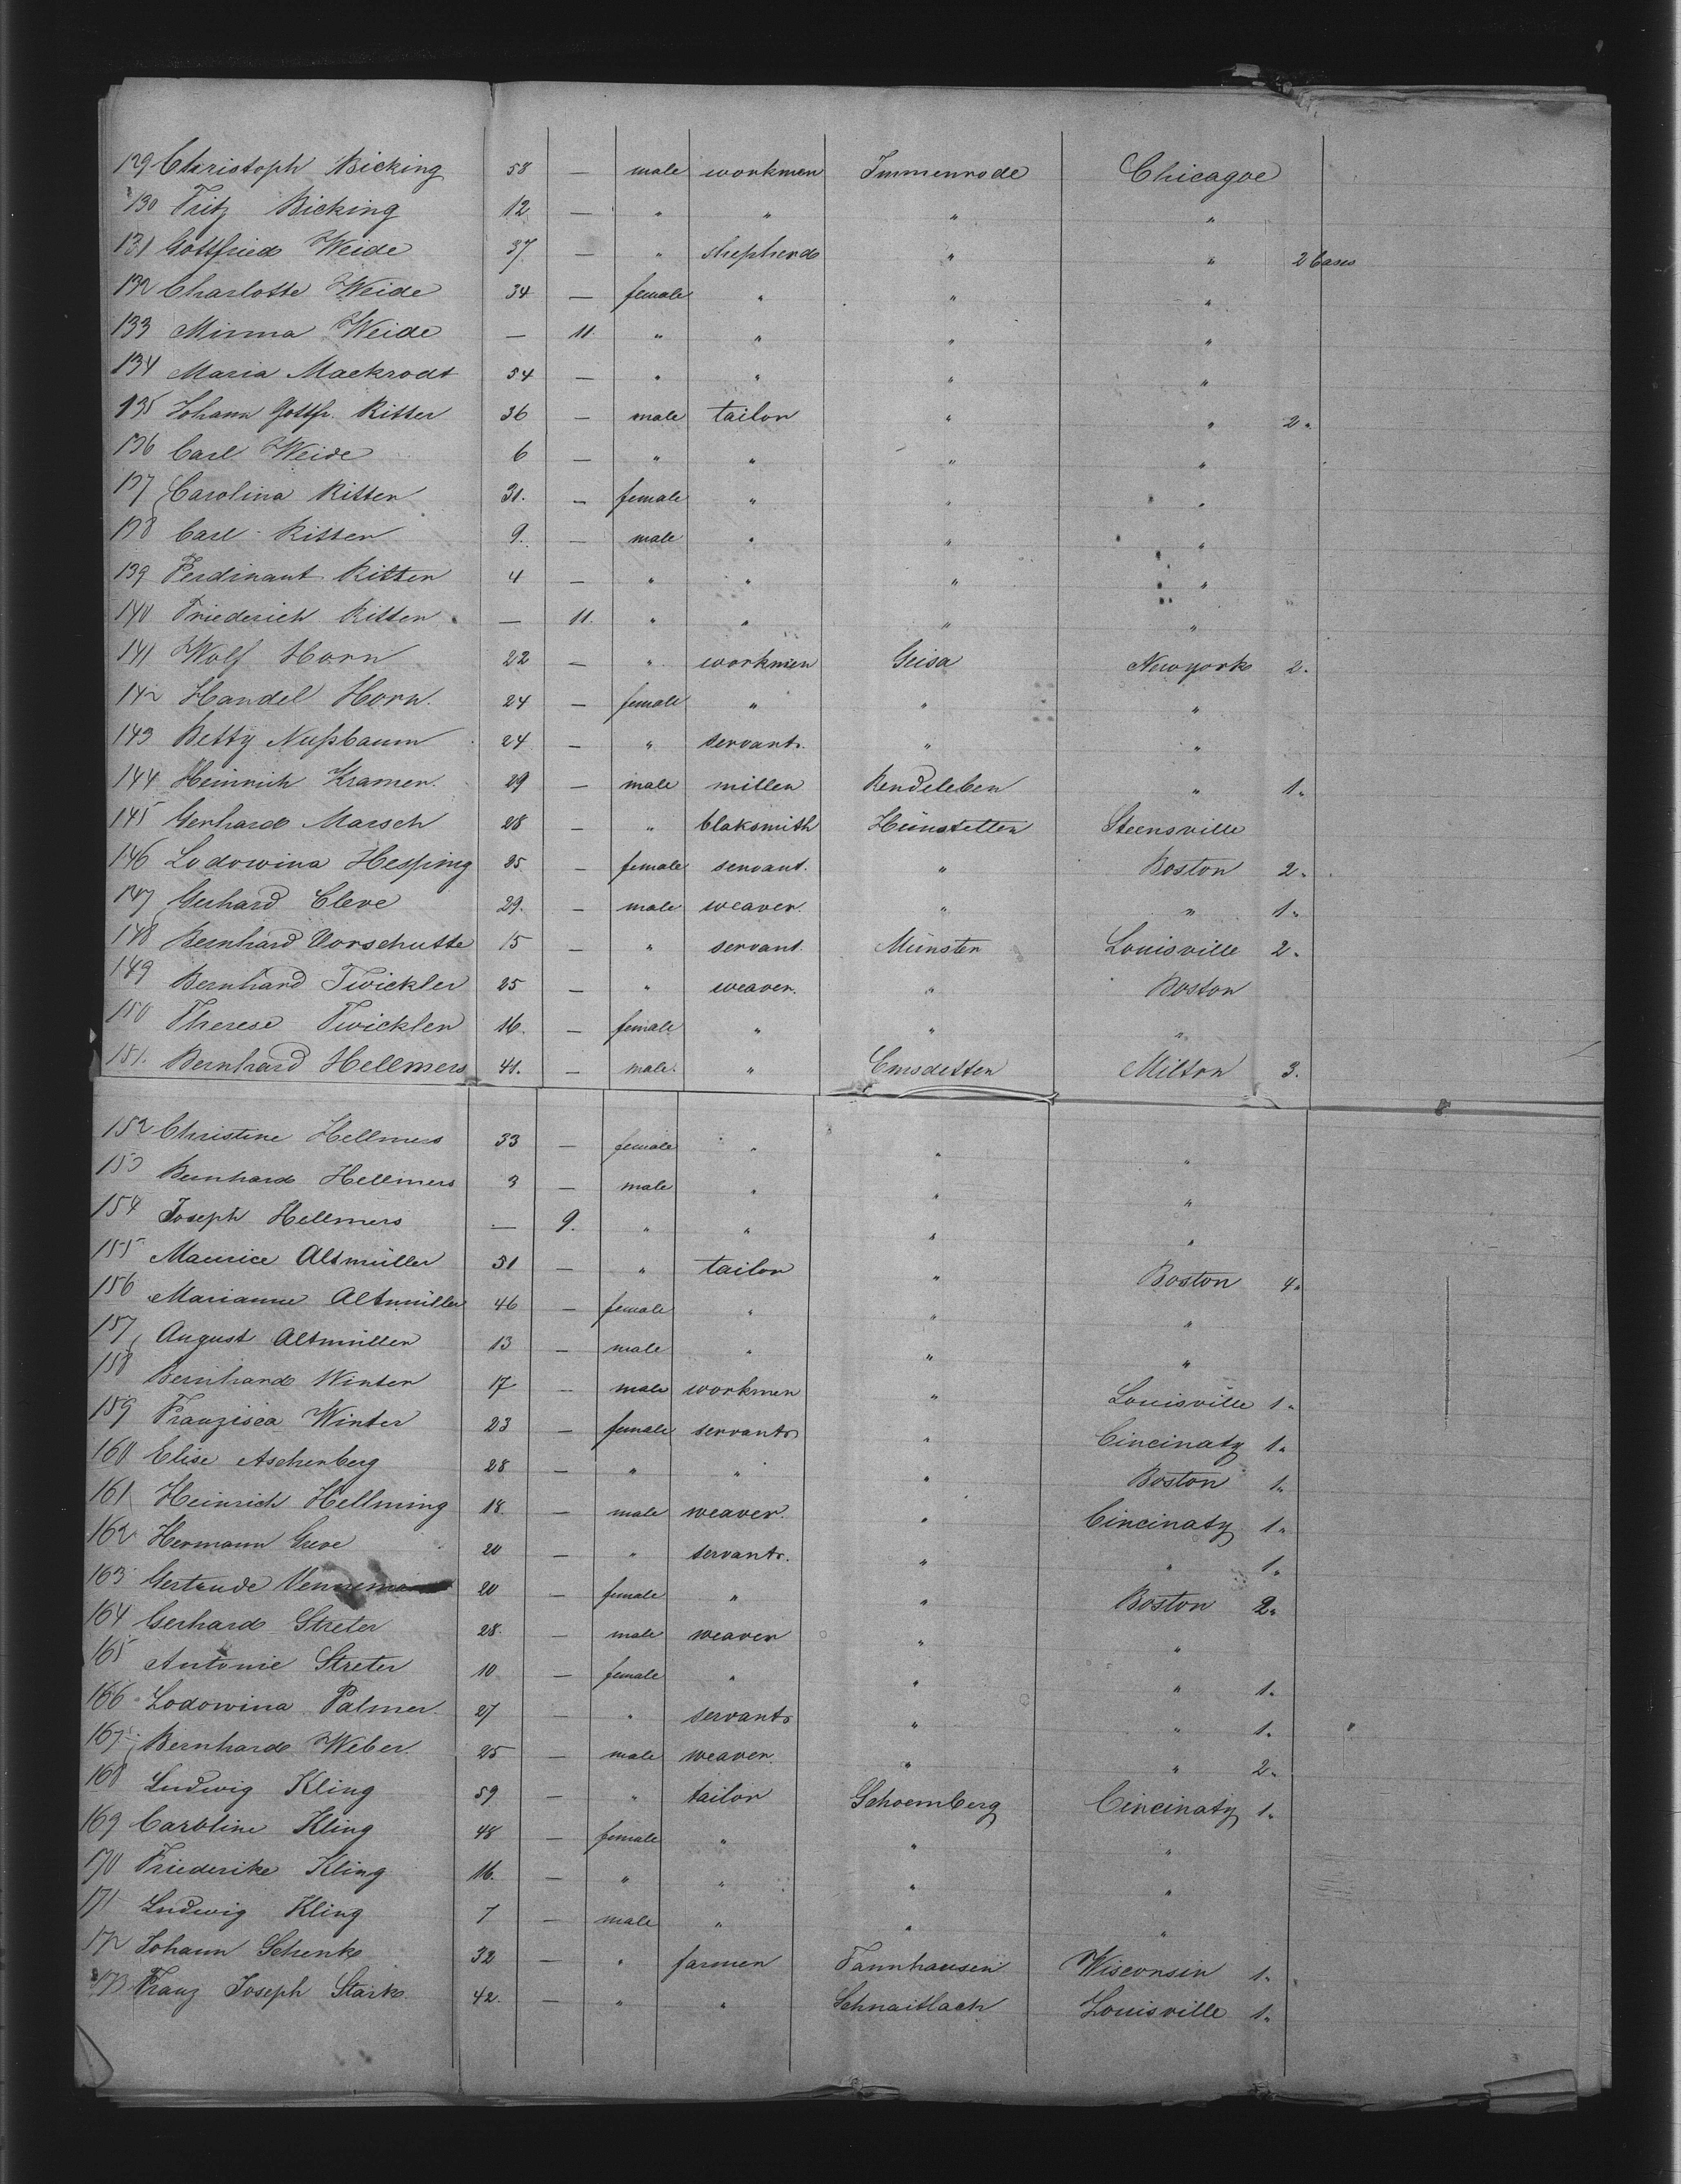 129 Christoph Bicking 58 — male workmen Immenrode Chicagoe
130 Fritz Bicking 12 — " " " "
131 Gottfried Weide 37 — " shepherd " " 2 Cases
132 Charlotte Weide 34 — female " " "
133 Minna Weide — 11. " " " "
134 Maria Mackrodt 54 — " " " "
135 Johann Gottfr. Ritter 36 — male tailor " " 2 "
136 Carl Weide 6 — " " " "
137 Carolina Ritter 31. — female " " "
138 Carl Ritter 9. — male " " "
139 Ferdinant Ritter 4 — " " " "
140 Friederich Ritter — 11. " " " "
141 Wolf Horn 22 — " workmen Geisa Newyork 2 "
142 Handel Horn. 24 — female " " "
143 Betty Nußbaum 24 — " servant. " "
144 Heinrich Kramer. 29 — male miller Bendeleben " 1 "
145 Gerhard Marsch 28 — " blaksmith Hünstetten Steensville
146 Lodowina Hesping 25 — female servant. " Boston 2 "
147 Gerhard Cleve 29. — male weaver. " " 1 "
148 Bernhard Vorschutte 15 — " servant. Münster Louisville 2 "
149 Bernhard Twickler 25 — " weaver. " Boston
150 Therese Twickler 16. — female " " "
151. Bernhard Hellmers 41. — male. " Emsdetten Milton 3.
152 Christine Hellmers 33 — female " " "
153 Bernhard Hellmers 3 — male " " "
154 Joseph Hellmers — 9. " " " "
155 Maurice Altmüller 51 — " tailor " Boston 4 "
156 Marianne Altmüller 46 — female " " "
157 August Altmüller 13 — male " " "
158 Bernhard Winter 17 — male workmen " Louisville 1 "
159 Franzisca Winter 23 — female servant " Cincinaty 1 "
160 Elise Aschenberg 28 — " " " Boston 1 "
161 Heinrich Hellming 18. — male weaver. " Cincinaty 1 "
162 Hermann Greve 20 — " servant. " " 1 "
163 Gertrude 20 — female " " Boston 2 "
164 Gerhard Streter 28. — male weaver " "
165 Antonie Streter 10 — female " " " 1 "
166 Lodowina Palmer. 27 — " servant " " 1 "
167 Bernhard Weber. 25 — male weaver. " " 2 "
168 Ludwig Kling 59 — " tailor Schoemberg Cincinaty 1 "
169 Caroline Kling 48 — female " " "
170 Friederike Kling 16. — " " " "
171 Ludwig Kling 7 — male " " "
172 Johann Schenk 32 — " farmer Tannhausen Wisconsin 1 "
173 Franz Joseph Stark. 42. — " " Schnaitlach Louisville 1 "